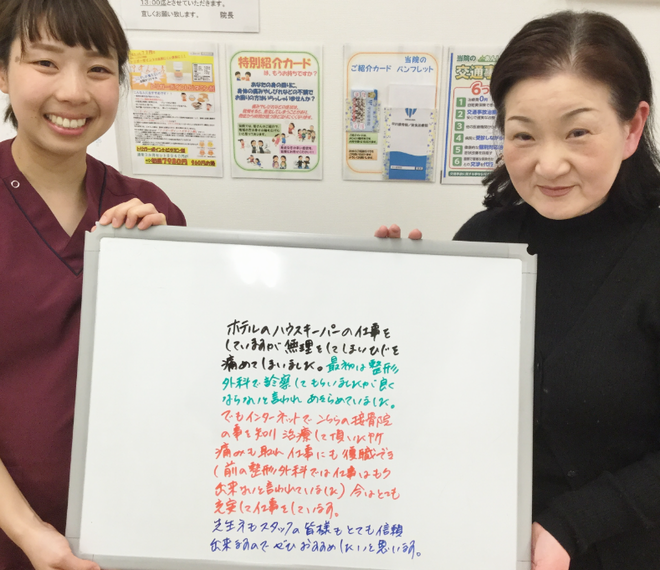 13:00迄とさせていただきます。
宜しくお願い致します。 院長
特別紹介カード
は、もうお持ちですか？
ご紹介カード
当院の
パンフレット
当院の
交通事
6つ
1
2
3
4
5
6
ホテルのハウスキーパーの仕事を
していますが無理をしてしまいひじを
痛めてしまいました。最初は整形
外科で診察してもらいましたが良く
ならないと言われ あきらめていました。
でもインターネットでこちらの接骨院
の事を知り治療して頂いた所
痛みも取れ仕事にも復職でき
(前の整形外科では仕事はもう
出来ないと言われていました)今はとても
充実して仕事をしています。
先生方もスタッフの皆様もとても信頼
出来ますのでぜひおすすめしたいと思います。